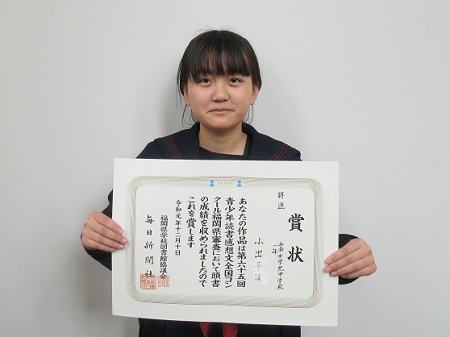 賞状
西南女学院中学校
一年
小出
あなたの作品は第六十五回
青少年読書感想文全国コン
クール福岡県審査において頭書
の成績を収められましたので
これを賞します
令和元年十二月十日
福岡県学校図書館協議会
毎日新聞社